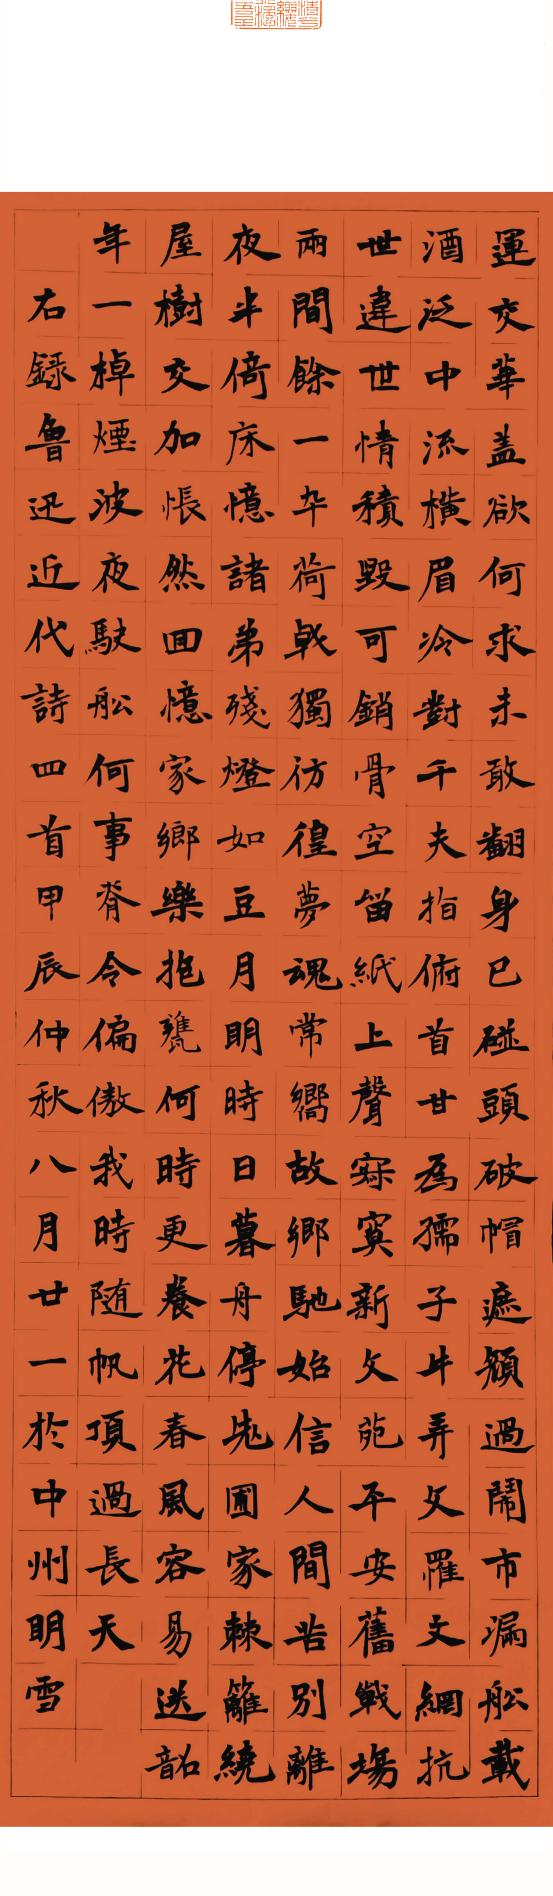 運交華盖欲何求未敢翻身已碰頭破帽遮顏過鬧市漏舩載
酒泛中流橫眉冷對千夫指俯首甘為孺子牛弄文罹文網抗
世違世情積毀可銷骨空留紙上聲寂寞新文苑平安舊戰場
兩間餘一卒荷戟獨彷徨夢魂常嚮故鄉馳始信人間苦別離
夜半倚床憶諸弟殘燈如豆月明時日暮舟停老圃家棘籬繞
屋樹交加悵然囬憶家鄉樂抱甕何時更養花春風容易送韶
年一棹煙波夜駛舩何事脊令偏傲我時随帆頂過長天
右録魯迅近代詩四首甲辰仲秋八月廿一於中州明雪